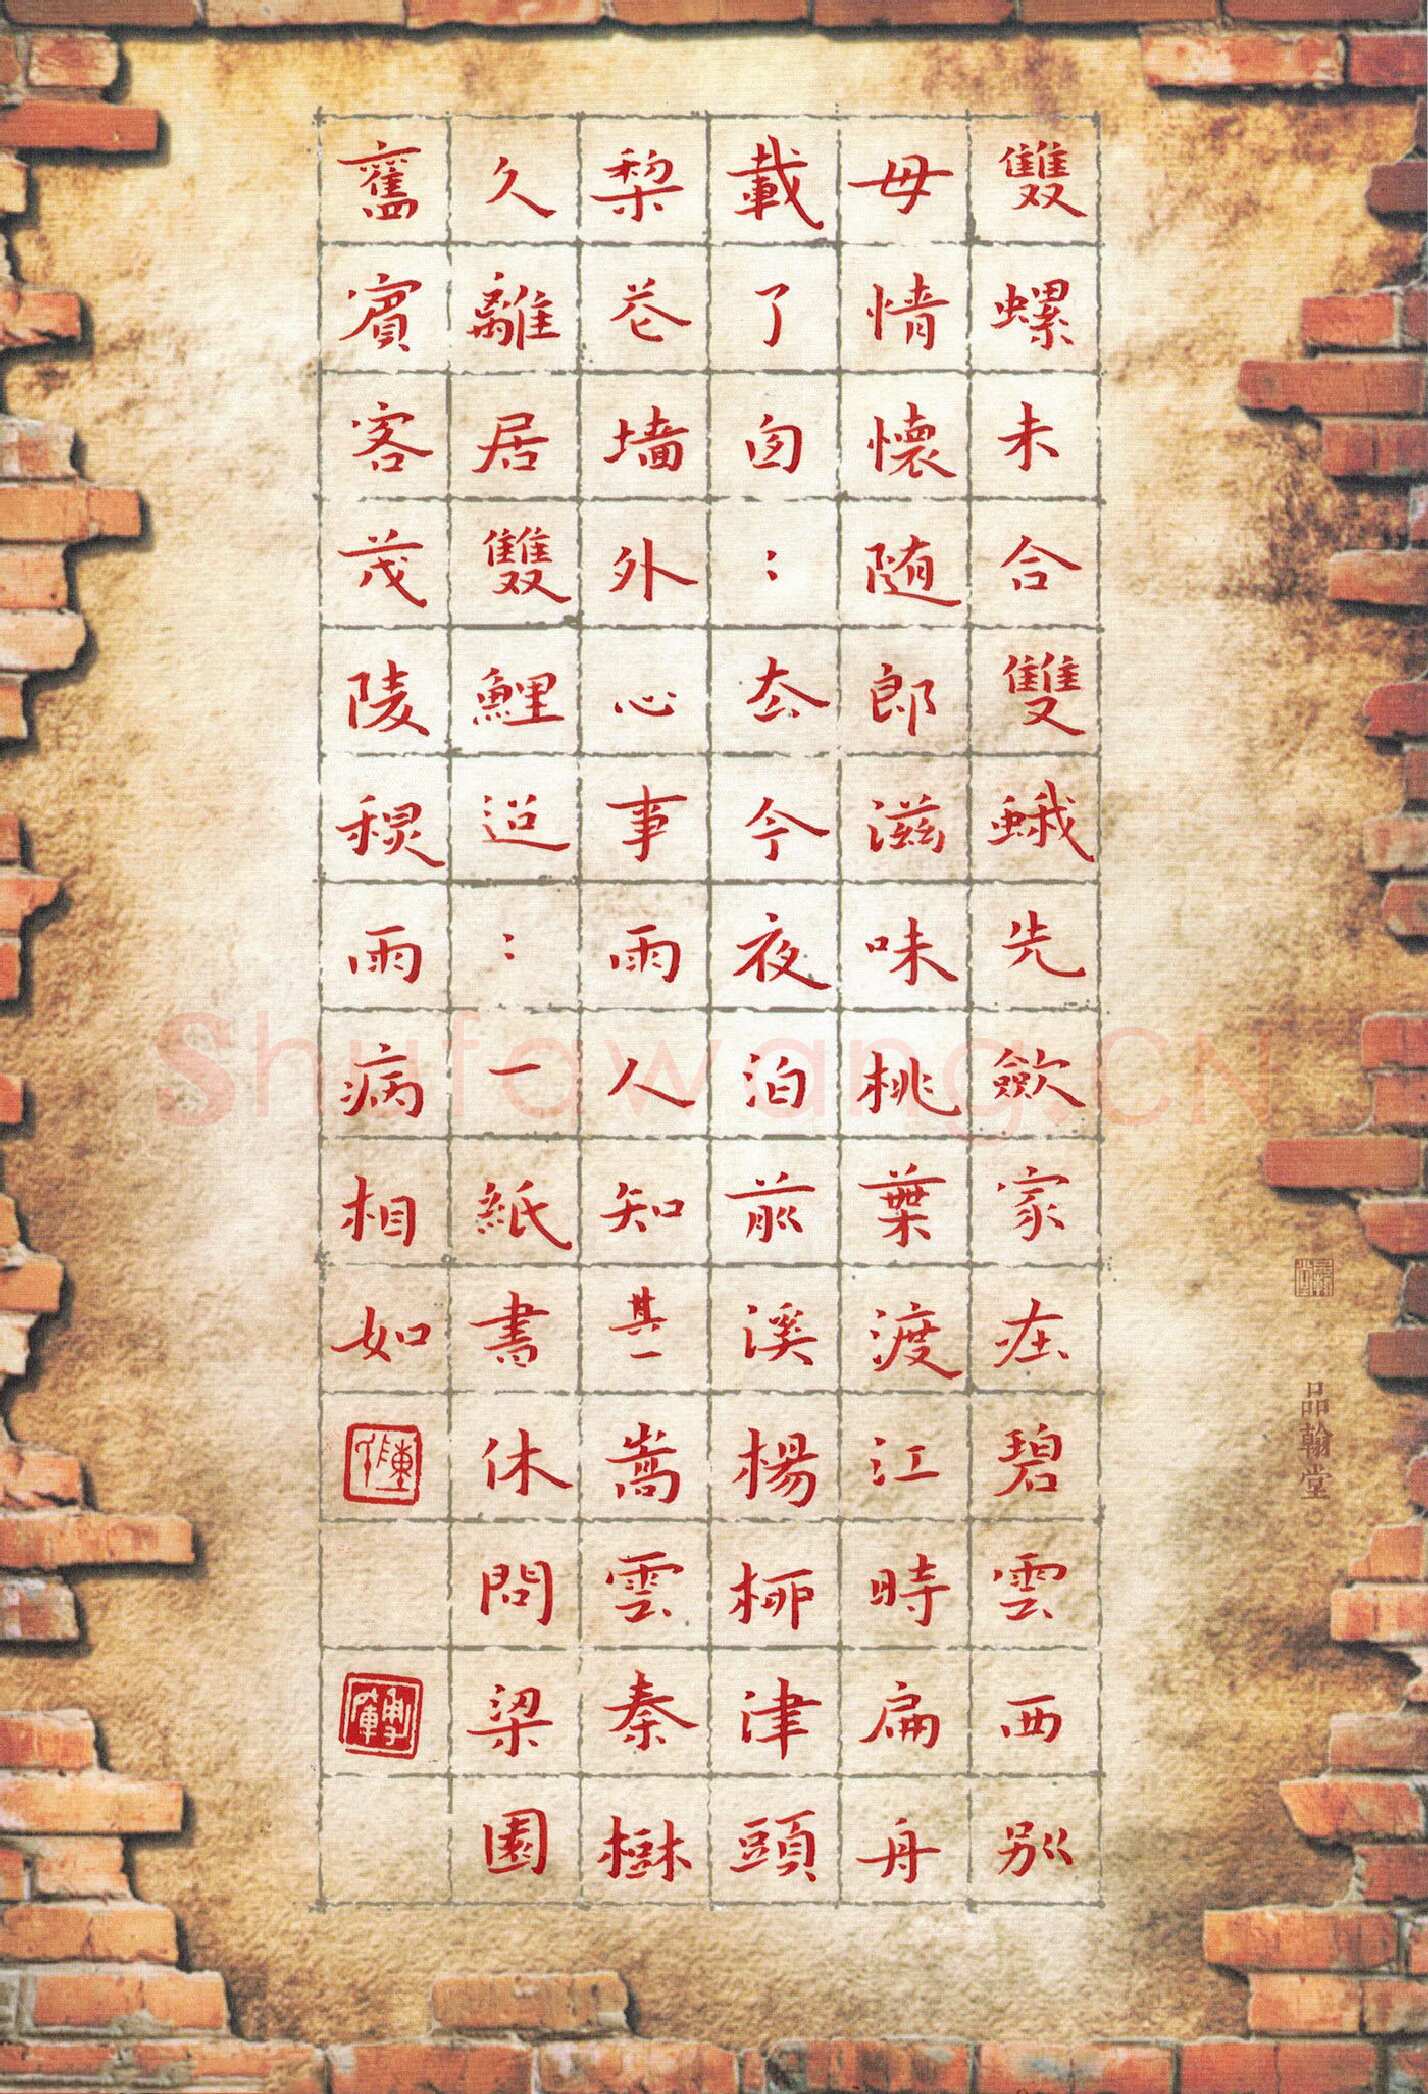 雙螺未合雙蛾先斂家在碧雲西別
母情懷随郎滋味桃葉渡江時扁舟
載了匆:去今夜泊前溪楊柳津頭
梨花墙外心事兩人知其一嵩雲秦樹
久離居雙鯉迢:一紙書休問梁園
舊賓客茂陵秋雨病相如
品翰堂
Shufawang.CN